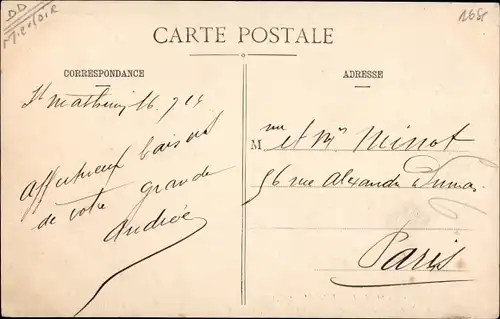 DD
MIENOIR
1265
CARTE POSTALE
CORRESPONDANCE
ADRESSE
St Mathieu 16.7 14
affectueux baisers
de votre grande
Andrée
Mme et Mr Minot
56 rue Alexandre Dumas
Paris